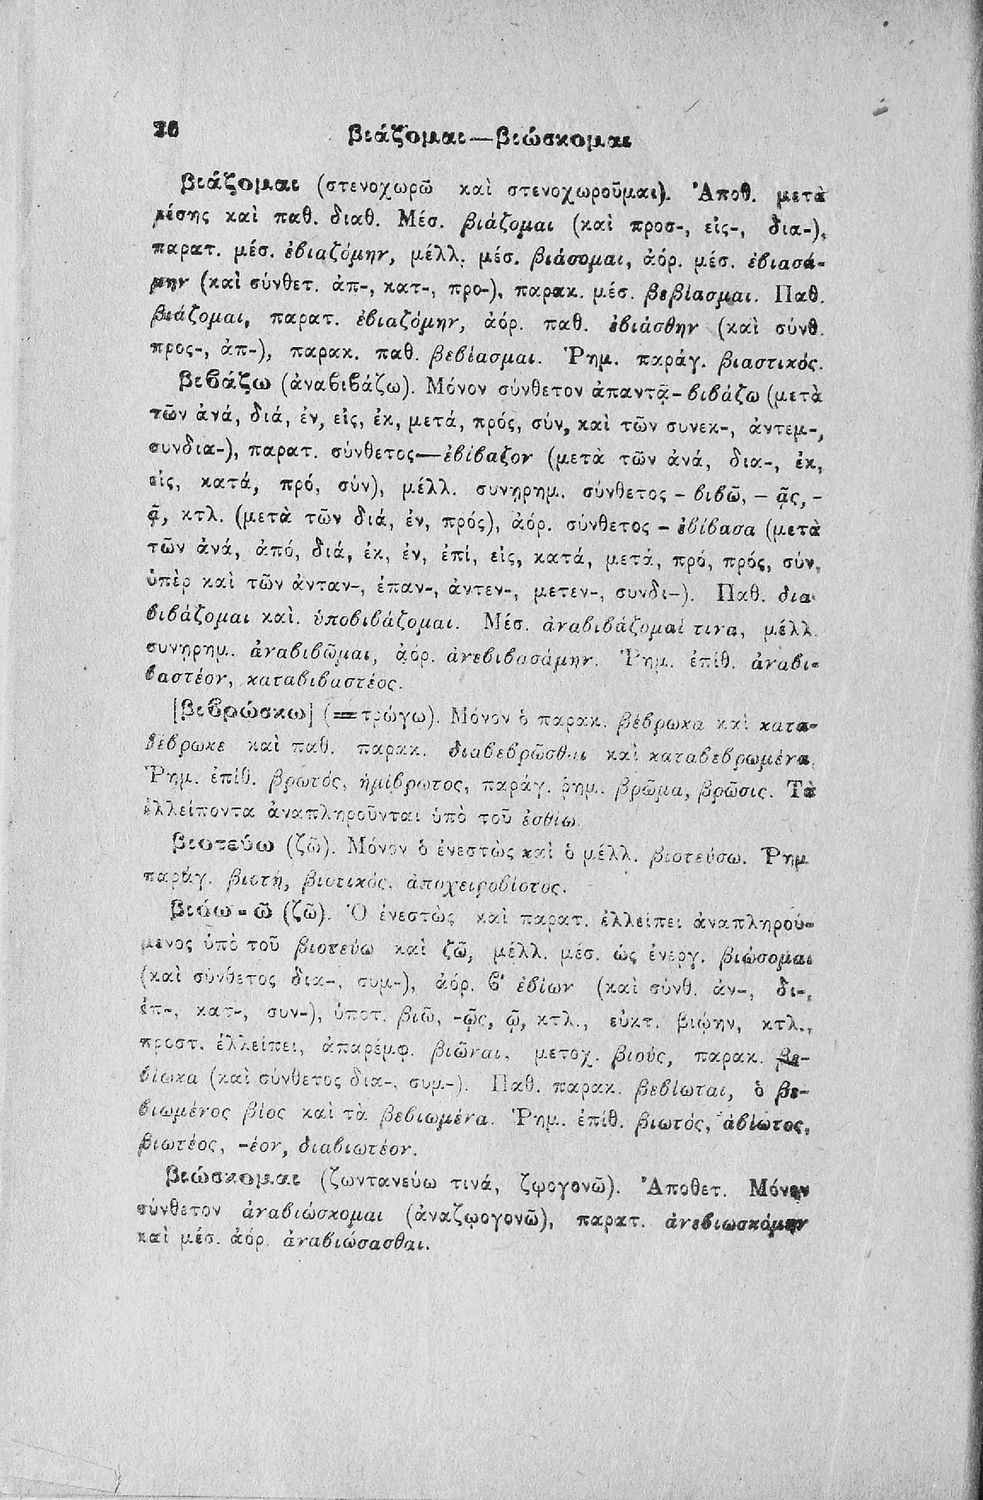 26
βιάζομαι—βιώσκομαι
βιάζομαι (στενοχωρῶ καὶ στενοχωροῦμαι). Ἀποθ. μετὰ
μέσης καὶ παθ. διαθ. Μέσ. βιάζομαι (καὶ προσ-, εἰς-, δια-),
παρατ. μέσ. ἐβιαζόμην, μέλλ. μέσ. βιάσομαι, ἀόρ. μέσ. ἐβιασά-
μην (καὶ σύνθετ. ἀπ-, κατ-, προ-), παρακ. μέσ. βεβίασμαι. Παθ.
βιάζομαι, παρατ. ἐβιαζόμην, ἀόρ. παθ. ἐβιάσθην (καὶ σύνθ.
προς-, ἀπ-), παρακ. παθ. βεβίασμαι. Ῥημ. παράγ. βιαστικός.
βιβάζω (ἀναβιβάζω). Μόνον σύνθετον ἀπαντᾷ-βιβάζω (μετὰ
τῶν ἀνά, διά, ἐν, εἰς, ἐκ, μετά, πρός, σύν, καὶ τῶν συνεκ-, ἀντεμ-,
συνδια-), παρατ. σύνθετος—ἐβίβαζον (μετὰ τῶν ἀνά, δια-, ἐκ,
εἰς, κατά, πρό, σύν), μέλλ. συνῃρημ. σύνθετος - βιβῶ, - ᾷς, -
ᾷ, κτλ. (μετὰ τῶν διά, ἐν, πρός), ἀόρ. σύνθετος - ἐβίβασα (μετὰ
τῶν ἀνά, ἀπό, διά, ἐκ, ἐν, ἐπί, εἰς, κατά, μετά, πρό, πρός, σύν,
ὑπὲρ καὶ τῶν ἀνταν-, ἐπαν-, ἀντεν-, μετεν-, συνδι-). Παθ. δια-
βιβάζομαι καὶ. ὑποβιβάζομαι. Μέσ. ἀναβιβάζομαί τινα, μέλλ.
συνῃρημ. ἀναβιβῶμαι, ἀόρ. ἀνεβιβασάμην. Ῥημ. ἐπίθ. ἀναβι-
βαστέον, καταβιβαστέος.
[βιβρώσκω] (=τρώγω). Μόνον ὁ παρακ. βέβρωκα καὶ κατα-
βέβρωκε καὶ παθ. παρακ. διαβεβρῶσθαι καὶ καταβεβρωμένα.
Ῥημ. ἐπίθ. βρωτός, ἡμίβρωτος, παράγ. ῥημ. βρῶμα, βρῶσις. Τὰ
ἐλλείποντα ἀναπληροῦνται ὑπὸ τοῦ ἐσθίω.
βιοτεύω (ζῶ). Μόνον ὁ ἐνεστὼς καὶ ὁ μέλλ. βιοτεύσω. Ῥημ
παράγ. βιοτή, βιοτικός, ἀποχειροβίοτος.
βιόω-ῶ (ζῶ). Ὁ ἐνεστὼς καὶ παρατ. ἐλλείπει ἀναπληρού-
μενος ὑπὸ τοῦ βιοτεύω καὶ ζῶ, μέλλ. μέσ. ὡς ἐνεργ. βιώσομαι
(καὶ σύνθετος δια-, συμ-), ἀόρ. β' ἐβίων (καὶ σύνθ. ἀν-, δι-,
ἐπ-, κατ-, συν-), ὑποτ. βιῶ, -ῷς, ῷ, κτλ., εὐκτ. βιῴην, κτλ.,
προστ. ἐλλείπει, ἀπαρέμφ. βιῶναι, μετοχ. βιούς, παρακ. βε-
βίωκα (καὶ σύνθετος δια-, συμ-). Παθ. παρακ. βεβίωται, ὁ βε-
βιωμένος βίος καὶ τὰ βεβιωμένα. Ῥημ. ἐπίθ. βιωτός, ἀβίωτος,
βιωτέος, -έον, διαβιωτέον.
βιώσκομαι (ζωντανεύω τινά, ζῳογονῶ). Ἀποθετ. Μόνον
σύνθετον ἀναβιώσκομαι (ἀναζῳογονῶ), παρατ. ἀνεβιωσκόμην
καὶ μέσ. ἀόρ. ἀναβιώσασθαι.